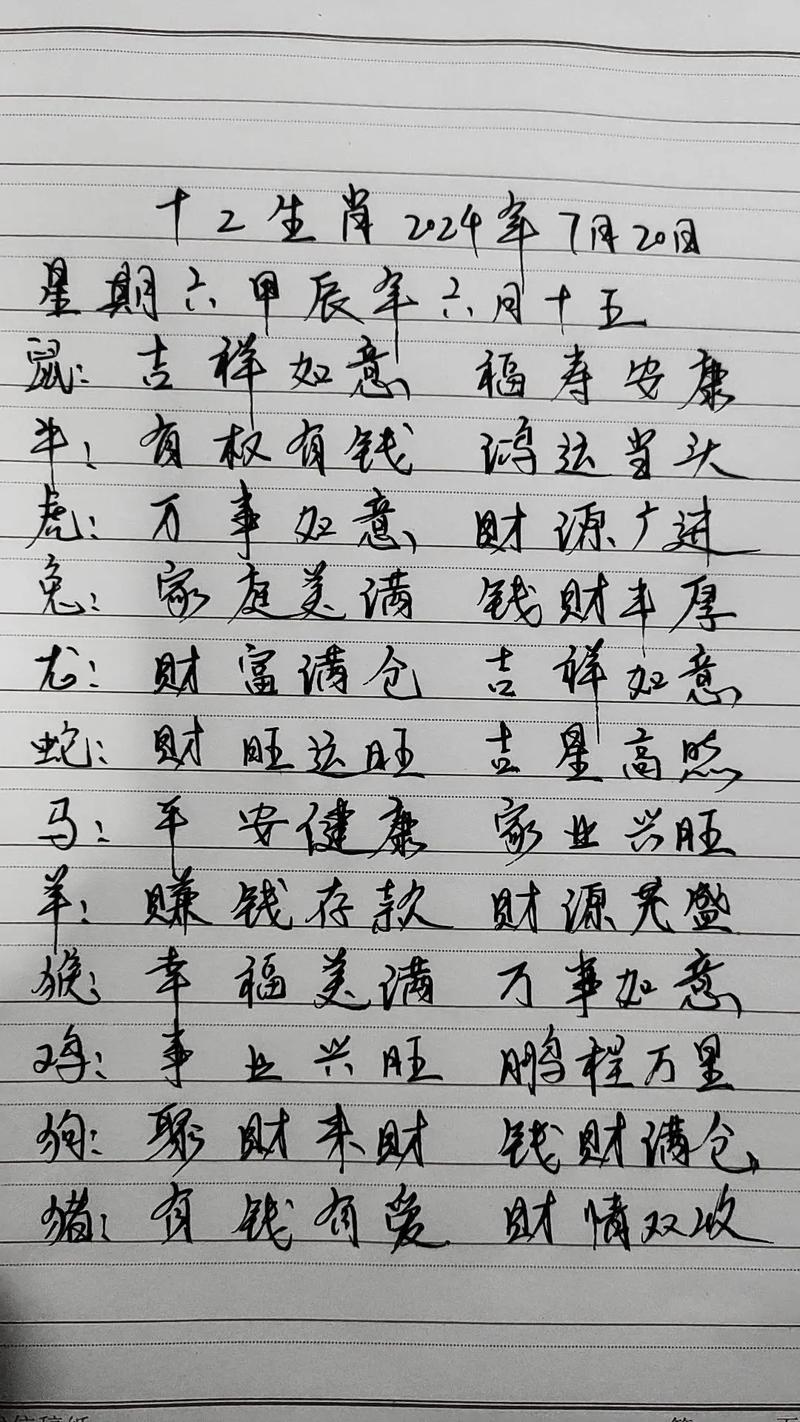 十二生肖2024年7月20日
星期六甲辰年六月十五
鼠：吉祥如意 福寿安康
牛：有权有钱 鸿运当头
虎：万事如意 财源广进
兔：家庭美满 钱财丰厚
龙：财富满仓 吉祥如意
蛇：财旺运旺 吉星高照
马：平安健康 家业兴旺
羊：赚钱存款 财源茂盛
猴：幸福美满 万事如意
鸡：事业兴旺 鹏程万里
狗：聚财来财 钱财满仓
猪：有钱有爱 财情双收